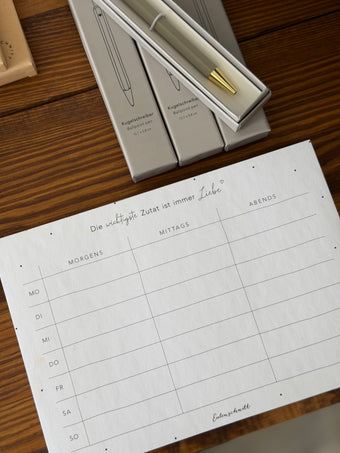 Kugelschreiber
Ballpoint pen
Kugelschreiber
Ballpoint pen
Die wichtigste Zutat ist immer Liebe
MORGENS
MITTAGS
ABENDS
MO
DI
MI
DO
FR
SA
SO
Eulenschnitt